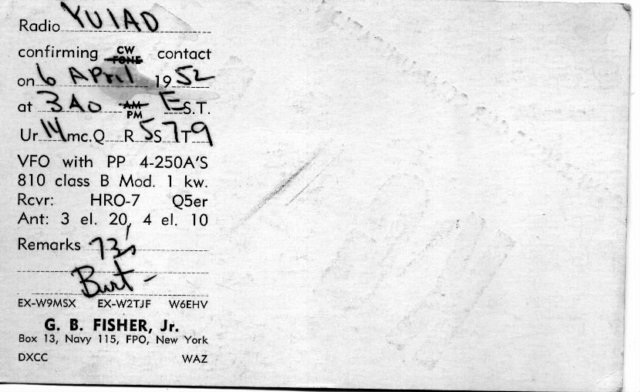 Radio YU1AD
confirming CW FONE contact
on 6 April 1952
at 3 AM PM E.S.T.
Ur 14 mc.Q R 5 S 7 T 9
VFO with PP 4-250A'S
810 class B Mod. 1 kw.
Rcvr: HRO-7 Q5er
Ant: 3 el. 20, 4 el. 10
Remarks 73's
Burt -
EX-W9MSX EX-W2TJF W6EHV
G. B. FISHER, Jr.
Box 13, Navy 115, FPO, New York
DXCC WAZ